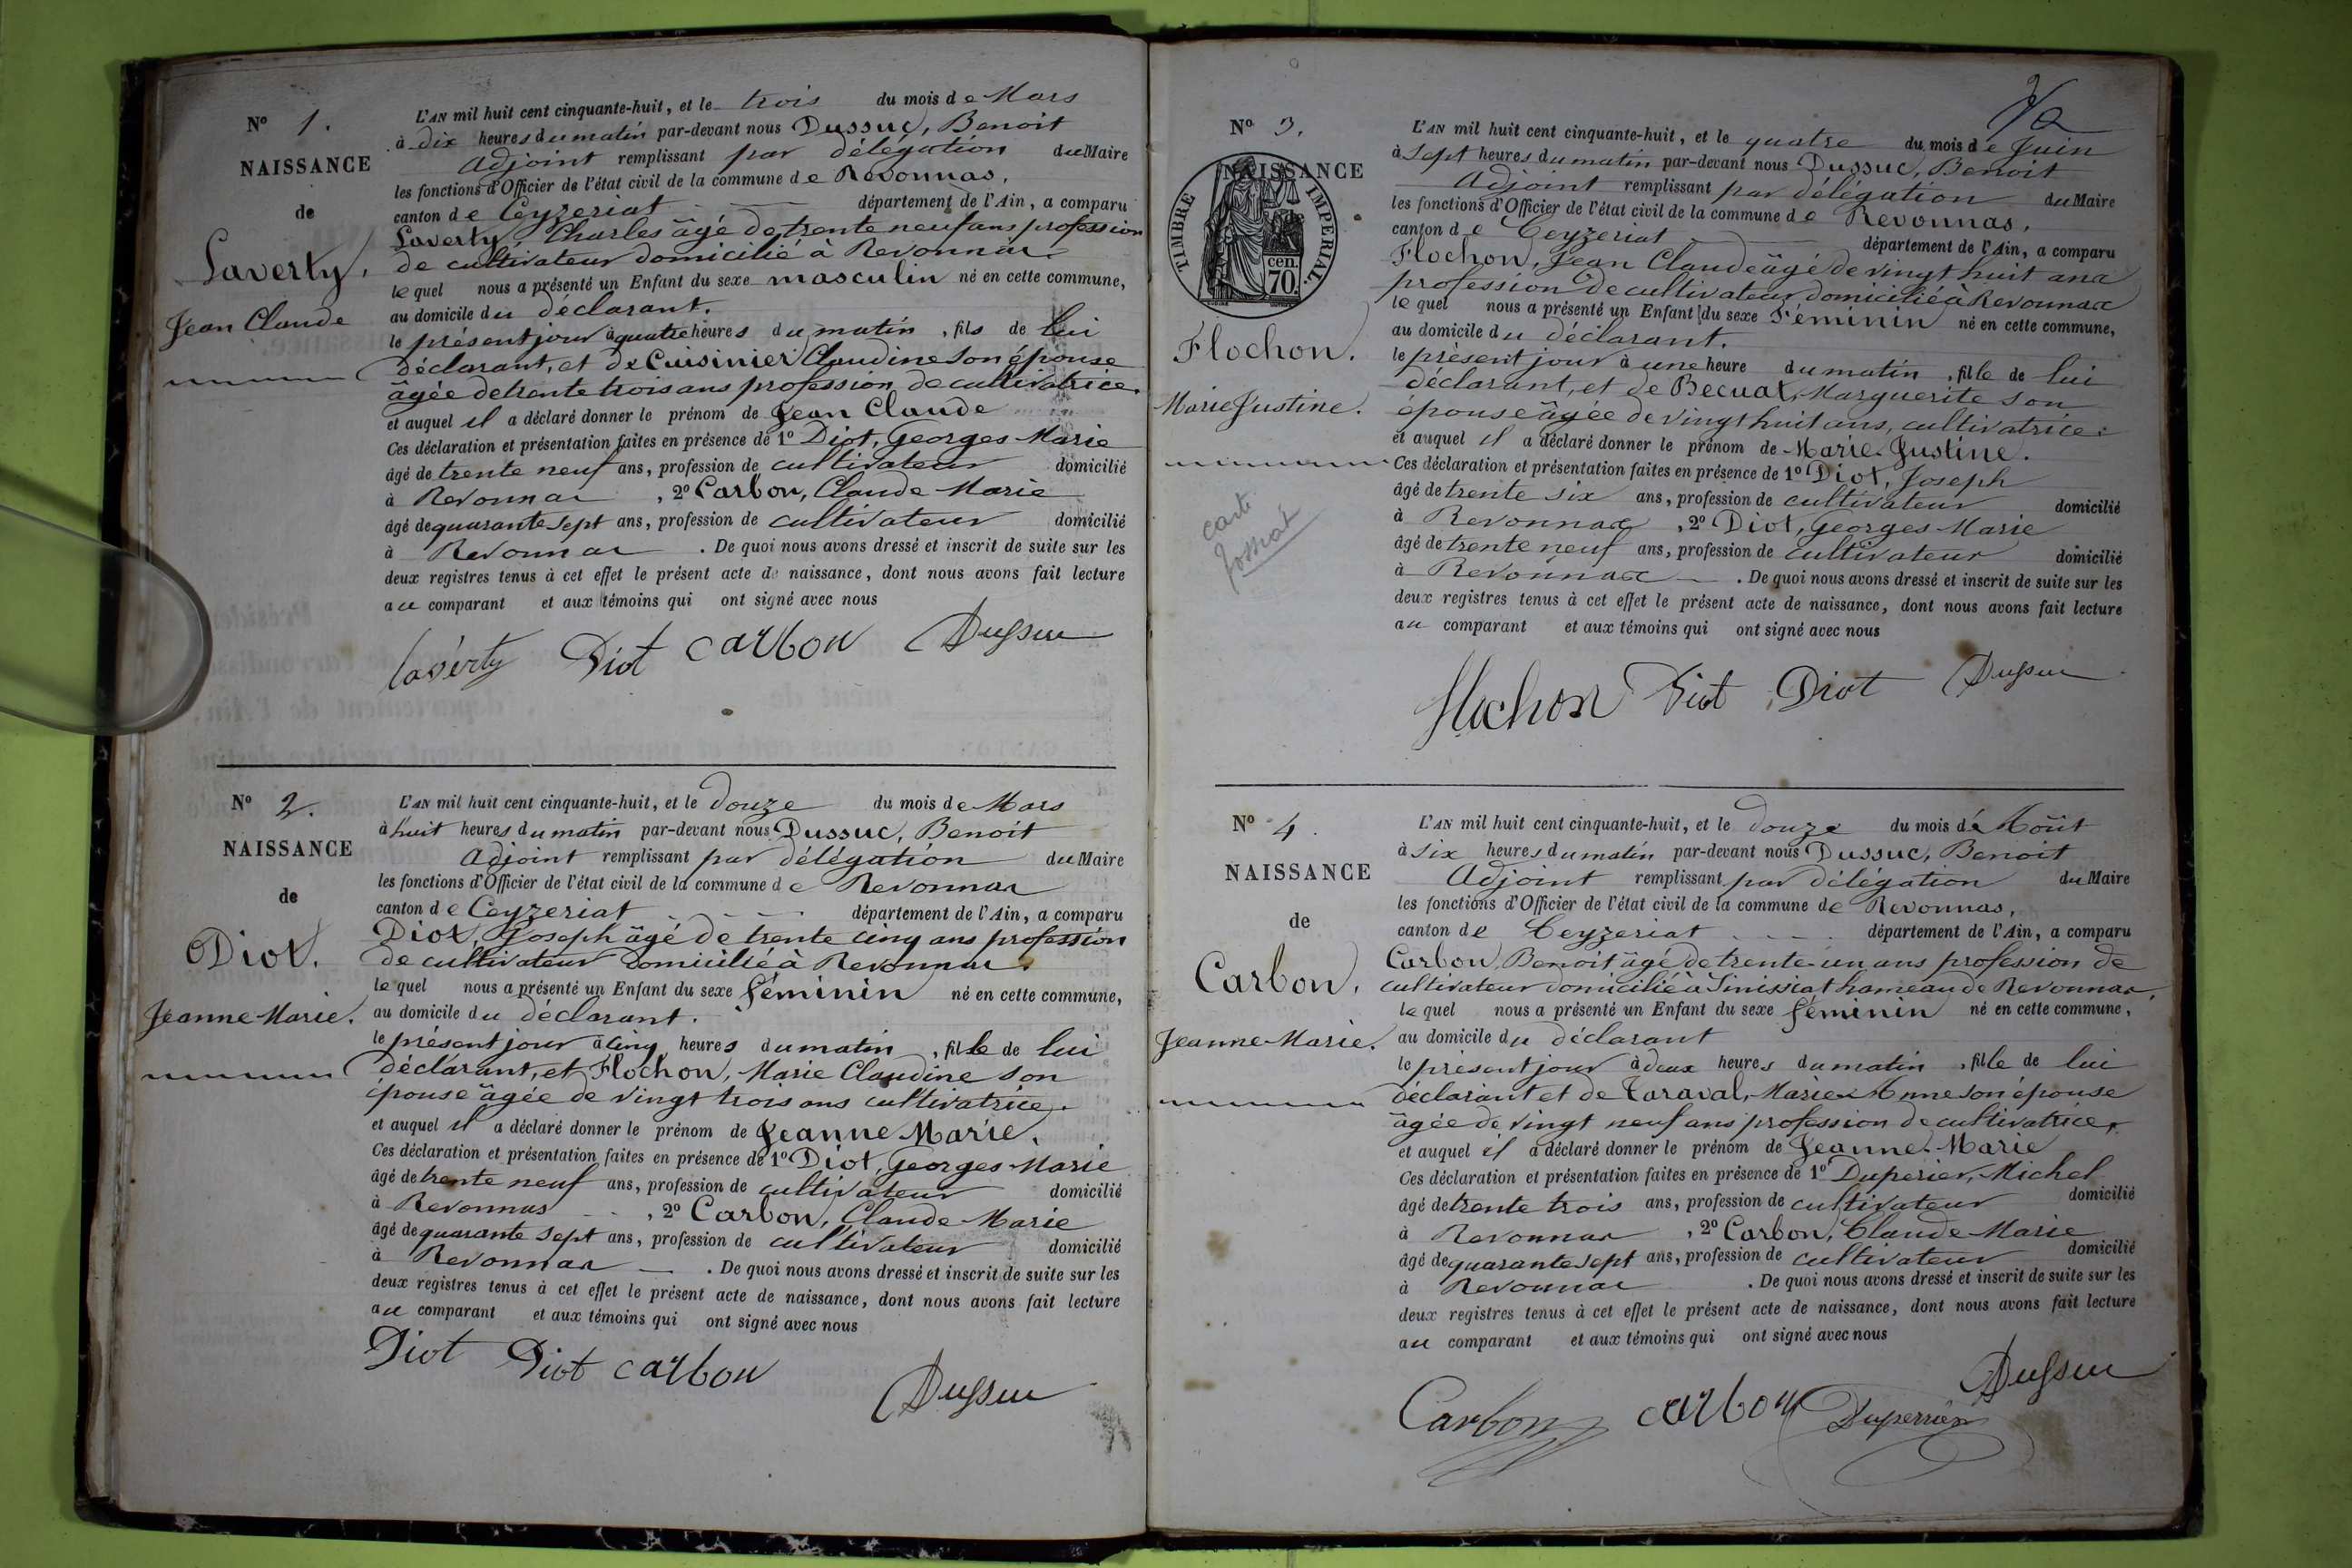 N° 1.
NAISSANCE
de
Laverty,
Jean Claude
L'AN mil huit cent cinquante-huit, et le trois du mois de Mars
à dix heures du matin par-devant nous Dussuc, Benoit
Adjoint remplissant par délégation du Maire
les fonctions d'Officier de l'état civil de la commune de Revonnas,
canton de Ceyzeriat département de l'Ain, a comparu
Laverty, Charles âgé de trente neuf ans profession
de cultivateur domicilié à Revonnas
lequel nous a présenté un Enfant du sexe masculin né en cette commune,
au domicile du déclarant.
le présent jour à quatre heures du matin, fils de lui
déclarant, et de Cuisinier Claudine son épouse
âgée de trente trois ans profession de cultivatrice.
et auquel il a déclaré donner le prénom de Jean Claude
Ces déclaration et présentation faites en présence de 1° Diot, Georges Marie
âgé de trente neuf ans, profession de cultivateur domicilié
à Revonnas, 2° Carbon, Claude Marie
âgé de quarante sept ans, profession de cultivateur domicilié
à Revonnas. De quoi nous avons dressé et inscrit de suite sur les
deux registres tenus à cet effet le présent acte de naissance, dont nous avons fait lecture
au comparant et aux témoins qui ont signé avec nous
laverty Diot carbon Dussuc
N° 2.
NAISSANCE
de
Diot.
Jeanne Marie.
L'AN mil huit cent cinquante-huit, et le douze du mois de Mars
à huit heures du matin par-devant nous Dussuc, Benoit
Adjoint remplissant par délégation du Maire
les fonctions d'Officier de l'état civil de la commune de Revonnas
canton de Ceyzeriat département de l'Ain, a comparu
Diot, Joseph âgé de trente cinq ans profession
de cultivateur domicilié à Revonnas.
lequel nous a présenté un Enfant du sexe féminin né en cette commune,
au domicile du déclarant.
le présent jour à cinq heures du matin, fille de lui
déclarant, et Flochon, Marie Claudine son
épouse âgée de vingt trois ans cultivatrice.
et auquel il a déclaré donner le prénom de Jeanne Marie.
Ces déclaration et présentation faites en présence de 1° Diot, Georges Marie
âgé de trente neuf ans, profession de cultivateur domicilié
à Revonnas, 2° Carbon, Claude Marie
âgé de quarante sept ans, profession de cultivateur domicilié
à Revonnas. De quoi nous avons dressé et inscrit de suite sur les
deux registres tenus à cet effet le présent acte de naissance, dont nous avons fait lecture
au comparant et aux témoins qui ont signé avec nous
Diot Diot carbon
Dussuc
N° 3.
NAISSANCE
TIMBRE IMPERIAL.
70. cen.
Flochon.
Marie Justine.
L'AN mil huit cent cinquante-huit, et le quatre du mois de Juin
à sept heures du matin par-devant nous Dussuc, Benoit
Adjoint remplissant par délégation du Maire
les fonctions d'Officier de l'état civil de la commune de Revonnas,
canton de Ceyzeriat département de l'Ain, a comparu
Flochon, Jean Claude âgé de vingt huit ans
profession de cultivateur domicilié à Revonnas
lequel nous a présenté un Enfant du sexe Féminin né en cette commune,
au domicile du déclarant.
le présent jour à une heure du matin, fille de lui
déclarant, et de Becuat, Marguerite son
épouse âgée de vingt huit ans, cultivatrice.
et auquel il a déclaré donner le prénom de Marie Justine.
Ces déclaration et présentation faites en présence de 1° Diot, Joseph
âgé de trente six ans, profession de cultivateur domicilié
à Revonnas, 2° Diot, Georges Marie
âgé de trente neuf ans, profession de cultivateur domicilié
à Revonnas. De quoi nous avons dressé et inscrit de suite sur les
deux registres tenus à cet effet le présent acte de naissance, dont nous avons fait lecture
au comparant et aux témoins qui ont signé avec nous
Flochon Diot Diot Dussuc
N° 4.
NAISSANCE
de
Carbon,
Jeanne Marie.
L'AN mil huit cent cinquante-huit, et le douze du mois de Août
à six heures du matin par-devant nous Dussuc, Benoit
Adjoint remplissant par délégation du Maire
les fonctions d'Officier de l'état civil de la commune de Revonnas,
canton de Ceyzeriat département de l'Ain, a comparu
Carbon, Benoit âgé de trente-un ans profession de
cultivateur domicilié à Sinissiat hameau de Revonnas,
lequel nous a présenté un Enfant du sexe féminin né en cette commune,
au domicile du déclarant
le présent jour à deux heures du matin, fille de lui
déclarant et de Taraval, Marie Anne son épouse
âgée de vingt neuf ans profession de cultivatrice,
et auquel il a déclaré donner le prénom de Jeanne Marie
Ces déclaration et présentation faites en présence de 1° Duperier, Michel
âgé de trente trois ans, profession de cultivateur domicilié
à Revonnas, 2° Carbon, Claude Marie
âgé de quarante sept ans, profession de cultivateur domicilié
à Revonnas. De quoi nous avons dressé et inscrit de suite sur les
deux registres tenus à cet effet le présent acte de naissance, dont nous avons fait lecture
au comparant et aux témoins qui ont signé avec nous
Carbon carbon Duperrier Dussuc